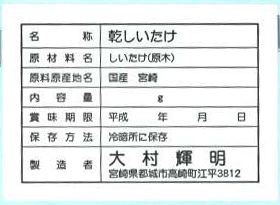 名称 乾しいたけ
原材料名 しいたけ(原木)
原料原産地名 国産 宮崎
内容量 g
賞味期限 平成 年 月 日
保存方法 冷暗所に保存
製造者 大村輝明
宮崎県都城市高崎町江平3812